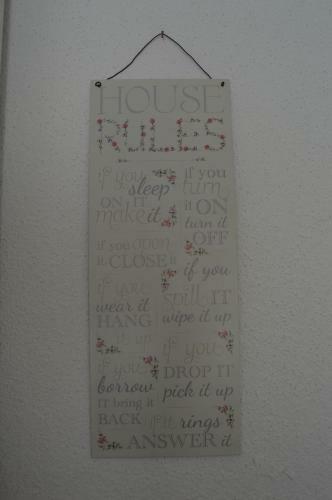 HOUSE
RULES
if you
sleep
ON IT
make it
if you open
it CLOSE it
if you
wear it
HANG
it up
if you
borrow
IT bring it
BACK
if you
turn
it ON
turn it
OFF
if you
spill IT
wipe it up
if you
DROP IT
pick it up
if it rings
ANSWER it